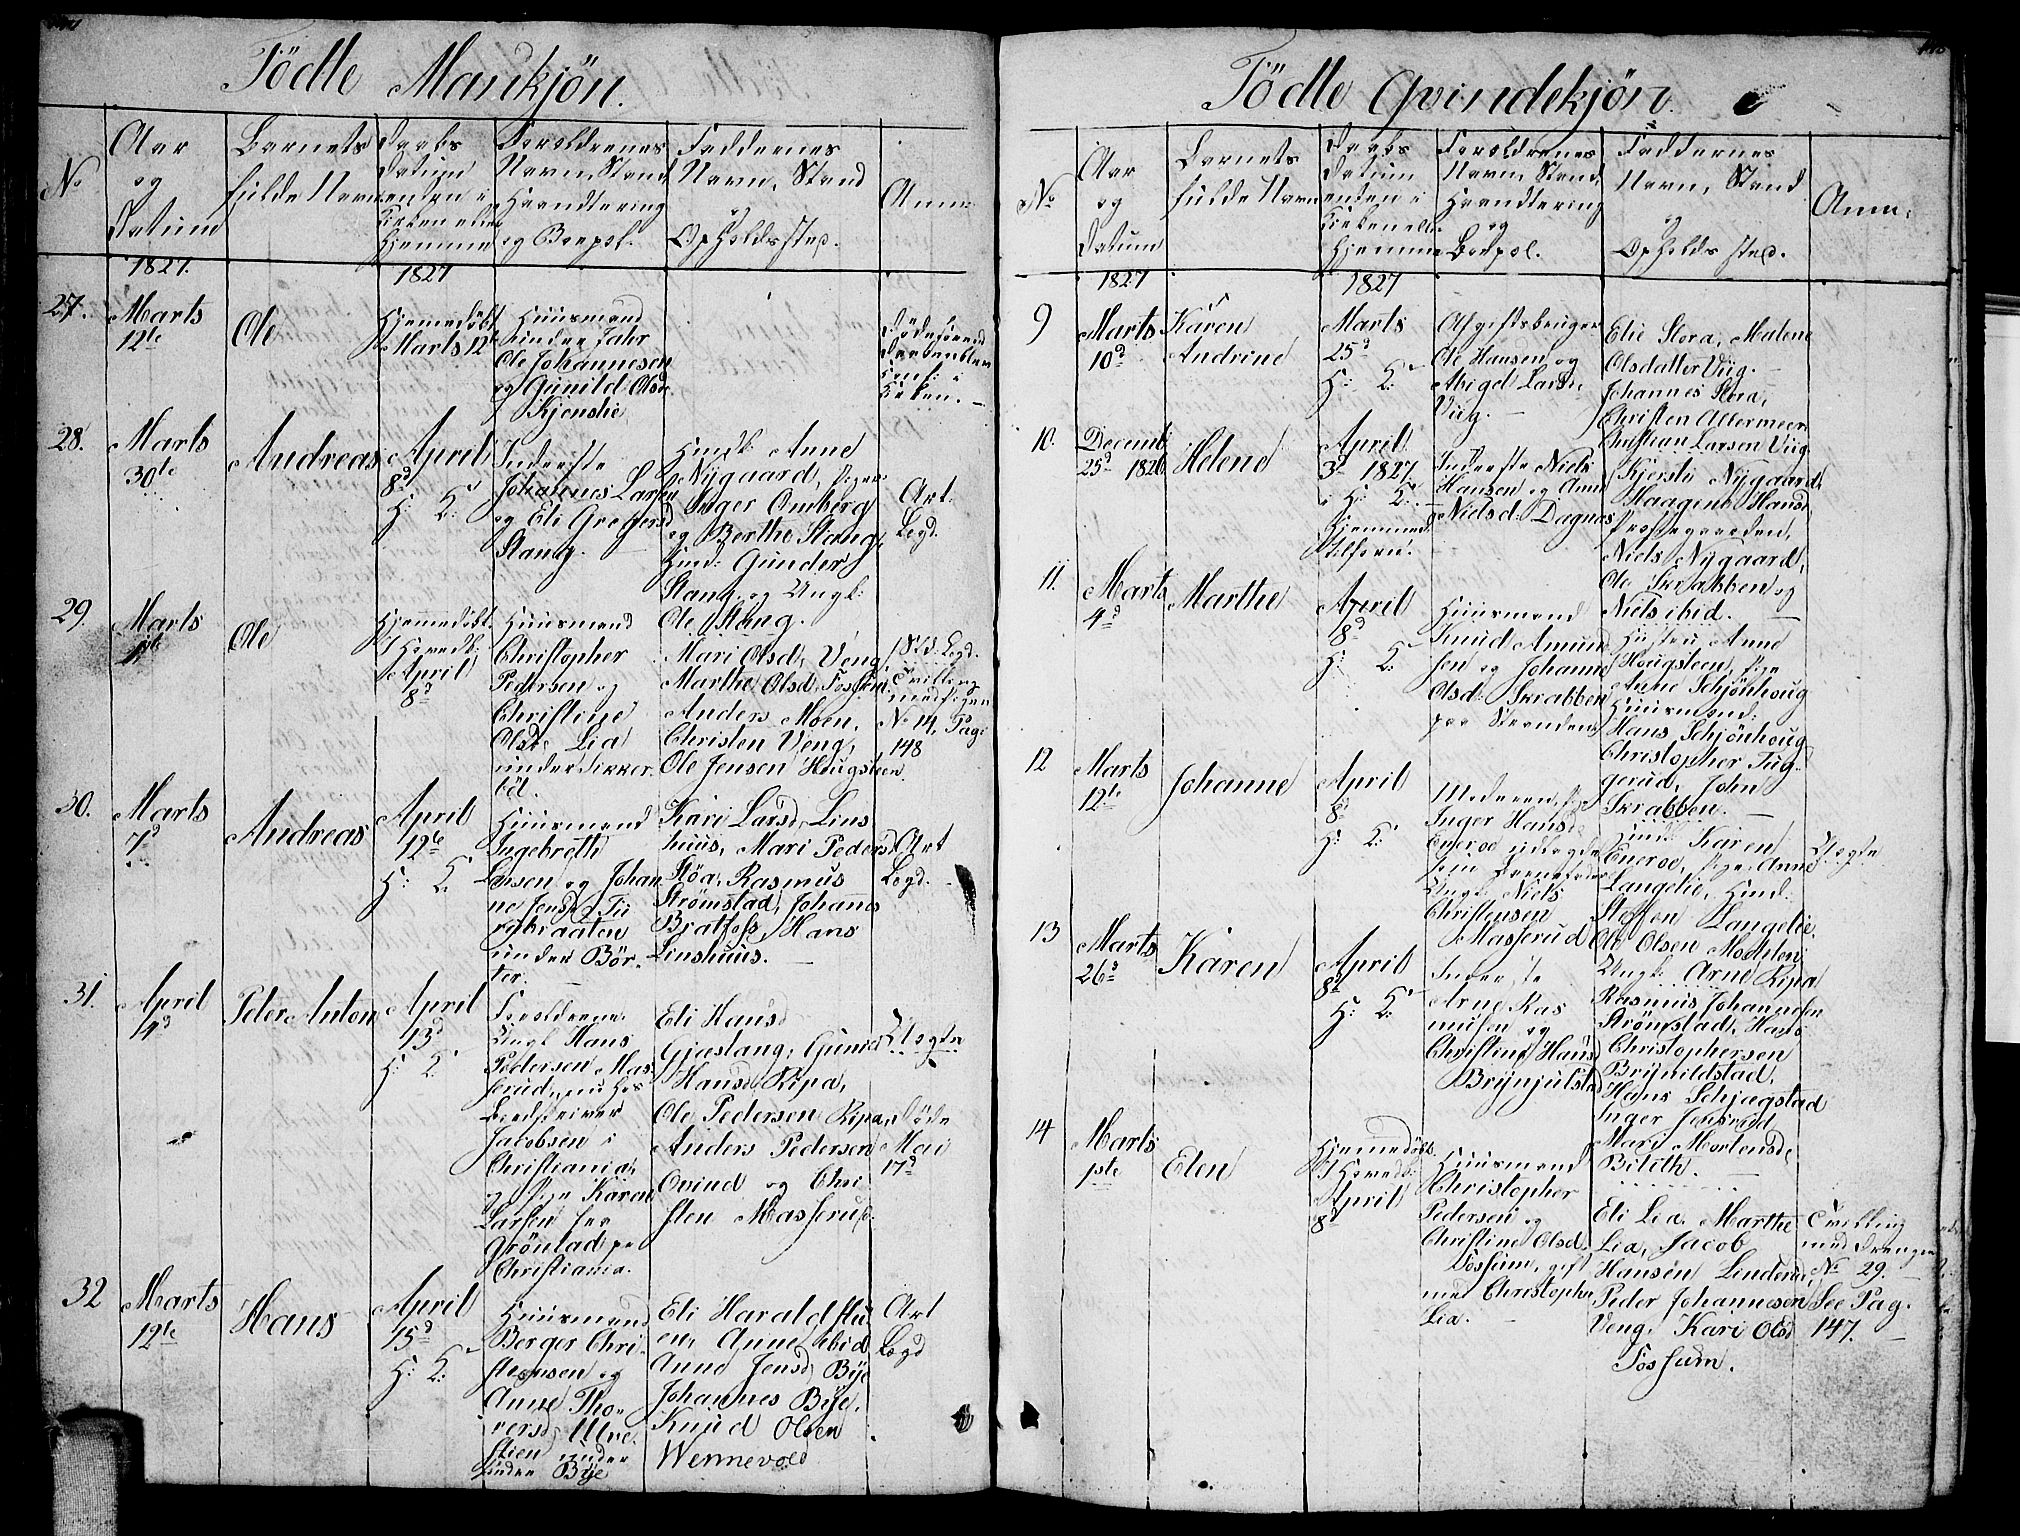 Födte Mankjön.
No
Aar
og
Datum
Barnets
fulde Navn
Daabs
Datum
enten i
Kirken eller
Hjemme
Foreldrenes
Navn, Stand
Haandtering
og Boepel.
Faddernes
Navn, Stand
og
Opholdssted.
Anm:
1827.
1827
27.
Marts
12te
Ole
Hjemedöbt
Marts 12te
Huusmand
under Jahr
Ole Johannesen
og Gunild Olsd.
Kjenslie
Kirken.
28.
Marts
30te
Andreas
April
8d
H: K:
Inderste
Johannes Larsen
og Eli Gregersd
Stang.
Anne
Nygaard, Pigen
Inger Omberg
og Berthe Stang,
Huusd: Gunder
Stang og Ungk:
Ole Stang.
Att.
Legd.
29.
Marts
1ste
Ole
Hjemmedöbt.
April
8d
Huusmand
Christopher
Pedersen og
Christine
Olsd. Lia
under Sikker
böl.
Mari Olsd, Veng,
Marthe Olsd, Fossum
Anders Moen,
Christen Veng,
Ole Jensen Hougsteen.
Att. Legd.
Tvilling
med Pigen
No 14, Pag:
148
30.
Marts
7d
Andreas
April
12te
H: K:
Huusmand
Ingebreth
Larsen og Johan
ne Jensd, Tü
rybraaten
under Bör
ter.
Kari Larsd, Lins
huus, Mari Pedersd
Stöa, Rasmus
Strömstad, Johannes
Bjatfoss, Hans
Linshuus.
Att
Legd.
31.
April
4d
Peter Anton
April
13d
H: K:
Foreldrene
Ungk Hans
Pedersen Mas
serud, nu hos
Jacobsen i
Christiania,
og Pige Karen
Larsen fra
Grönland pr
Christiania.
Eli Hansd
Gjæslang, Gunild
Hansd Ripa,
Ole Pedersen Ripa,
Anders Pedersen
Ovind og Chri
sten Masserud.
Uægte
Döde
Mai
17d
32
Marts
12te
Hans
April
15d
H: K:
Huusmand
Berger Chri
stensen og
Anne Tho
versd Ulve
stien under
under Bye
Eli Haraldstu
en, Anne ibid
Anne Jensd, Bye
Johannes Bye,
Knud Olsen
Wennevold
Att
Legd
Födte Qvindekjön.
No
Aar
og
Datum
Barnets
fulde Navn
Daabs
Datum
enten i
Kirken eller
Hjemme
Foreldrenes
Navn, Stand,
Haandtering
og
Boepel.
Faddernes
Navn, Stand
og
Opholdssted.
Anm.
1827
1827
9
Marts
10d
Karen
Andrine
Marts
25d
H: K:
Afgiftsbruger
Ole Hansen, og
Abigel Larsd.
Viig.
Elie Stora, Malene
Olsdatter Viig.
Johannes Stora,
Christen Altermeer
Christian Larsen Viig
10.
Decemb:
25d 1826
Helene
April
3d 1827
i H: K:
Hjemmed
Inderste Niels
Hansen og Anne
Nielsd: Dagnes
Kjersti Nygaard,
Haagine Hansd
Prestegaarden,
Niels Nygaard,
Ole Skrabben og
Niels ibid.
11.
Marts
4d
Marthe
April
8d
H: K:
Huusmand
Knud Amund
sen og Johanne
Olsd: Skrabben
paa Stranden
Hustru Anne
Hougsteen, Pige
Anne Schjönhoug
Huusmand:
Hans Schjönhoug
Christopher Tug
gerud, John
Skrabben.
12
Marts
12te
Johanne
April
8d
H: K:
Moderen, Pige
Inger Hansd
Eneroe udlagde
som Barnefader
Ungk: Niels
Christensen
Masserud
Karen
Eneroe, Pige Anne
Langelie,
Steffen Langelie,
Ole Olsen Mothten
Uægte
13
Marts
26d
Karen
April
8d
H: K:
Inderste
Arne Ras
musen og
Christine Hansd
Brynjulstad
Ungk: Arne Ripa
Rasmus Johannesen
Strömstad, Hans
Christophersen
Brynildstad,
Hans Schjagstad
Inger Jonsrud,
Mari Mortensd,
Bilith.
14
Marts
1ste
Elen
Hjemmedöbt.
April
8d
Huusmand
Christopher
Pedersen og
Christine Olsd.
Fossum, gift
med Christopher
Lia.
Eli Lia, Marthe
Lia, Jacob
Hansen Linderud,
Peder Johannesen
Veng, Kari Olsd
Fossum.
Tvilling
med Drengen
No 29.
See Pag.
147.